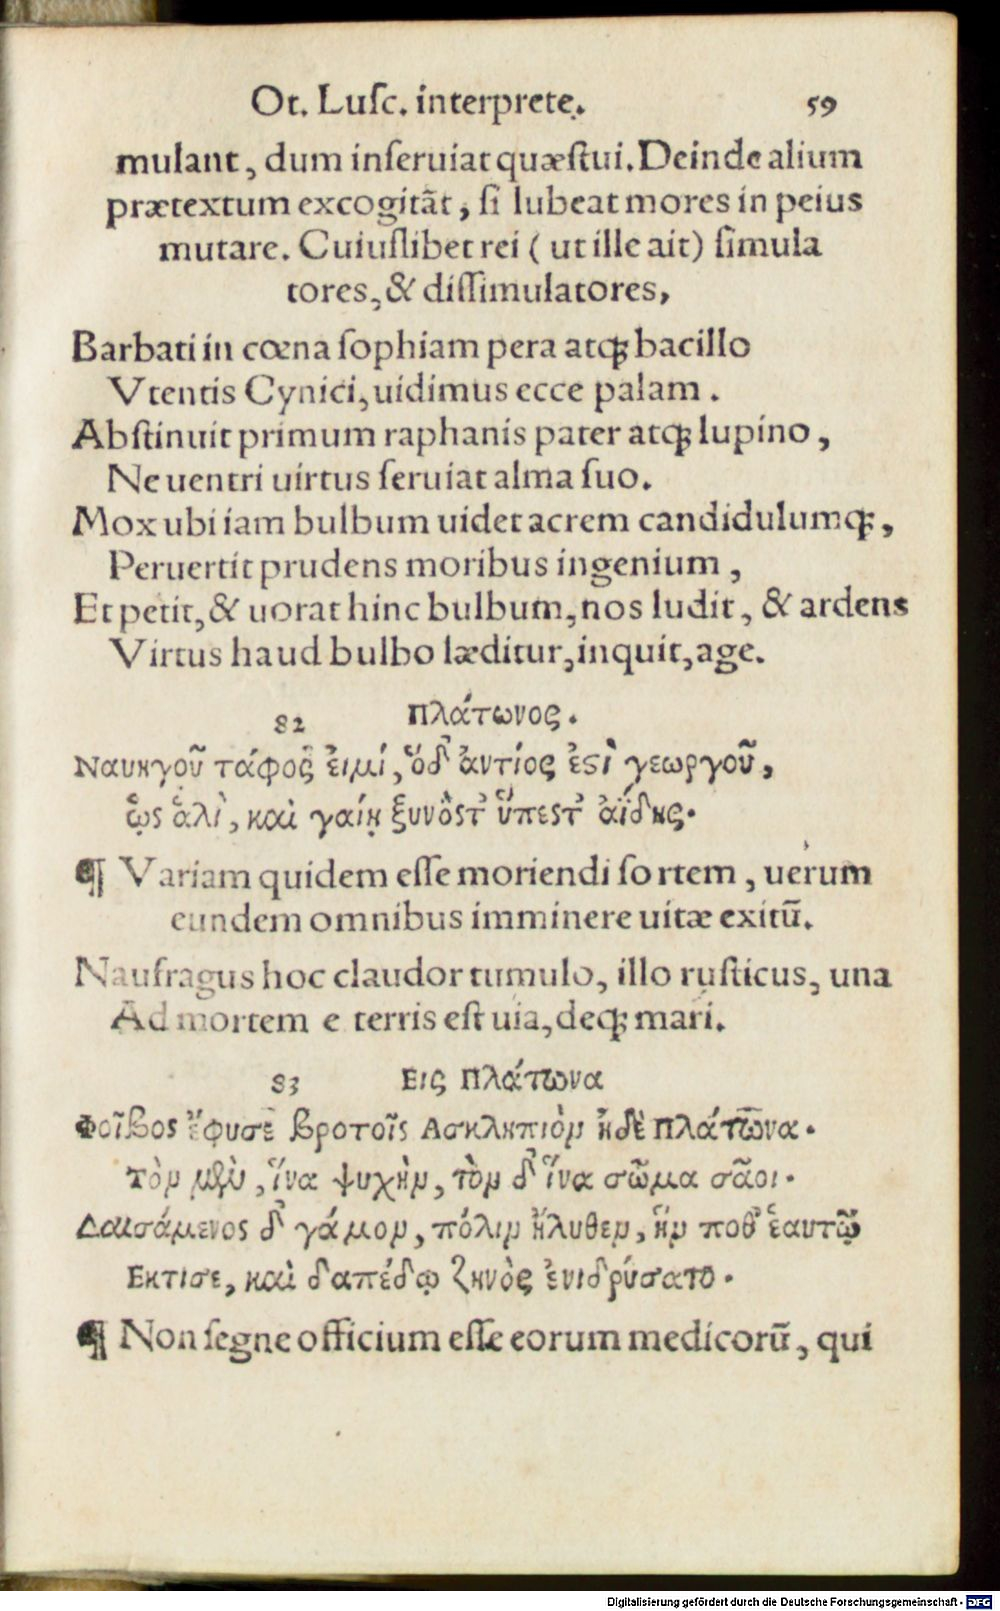 Ot. Luſc. interprete. 59
mulant, dum inſeruiat quæſtui. Deinde alium
prætextum excogitãt, ſi lubeat mores in peius
mutare. Cuiuſlibet rei ( ut ille ait) ſimula
tores, & diſſimulatores,
Barbati in cœna ſophiam pera atqꝫ bacillo
Vtentis Cynici, uidimus ecce palam.
Abſtinuit primum raphanis pater atqꝫ lupino,
Ne uentri uirtus ſeruiat alma ſuo.
Mox ubi iam bulbum uidet acrem candidulumqꝫ,
Peruertit prudens moribus ingenium,
Et petit, & uorat hinc bulbum, nos ludit, & ardens
Virtus haud bulbo læditur, inquit, age.
82 Πλάτωνος.
Ναυηγοῦ τάφος ἐιμί, ὅδ᾽ ἀντίος ἐϛὶ γεωργοῦ,
ᾧς ἁλὶ, καὶ γαίῃ ξυνὸςτ᾽ ὕπεςτ᾽ ἀΐδης.
¶ Variam quidem eſſe moriendi ſortem, uerum
eundem omnibus imminere uitæ exitũ.
Naufragus hoc claudor tumulo, illo ruſticus, una
Ad mortem e terris eſt uia, deqꝫ mari.
83 Εις Πλάτωνα
Φοῖβος ἔφυσε βροτοῖς Ασκληπιὸν ἠδὲ Πλάτωνα.
Τὸν μὲν, ἵνα ψυχὴν, τὸν δ᾽ ἵνα σῶμα σάοι.
Δαισάμενος δ᾽ γάμον, πόλιν ἤλυθεν, ἥν ποθ᾽ ἑαυτῷ
Εκτισε, καὶ δαπέδῳ ζηνὸς ἐνιδρύσατο.
¶ Non ſegne officium eſſe eorum medicorũ, qui
Digitalisierung gefördert durch die Deutsche Forschungsgemeinschaft - DFG